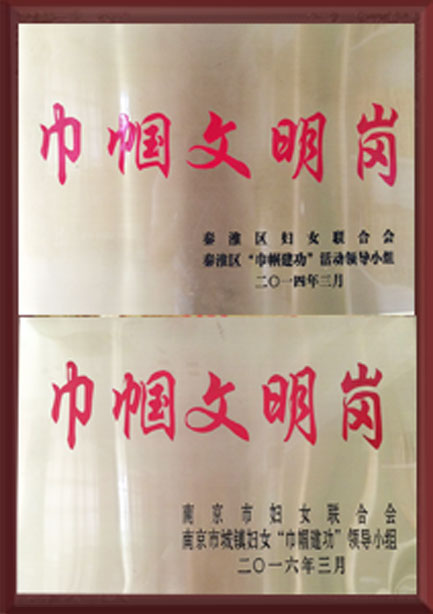 巾帼文明岗
秦淮区妇女联合会
秦淮区“巾帼建功”活动领导小组
二〇一四年三月
巾帼文明岗
南京市妇女联合会
南京市城镇妇女“巾帼建功”领导小组
二〇一六年三月